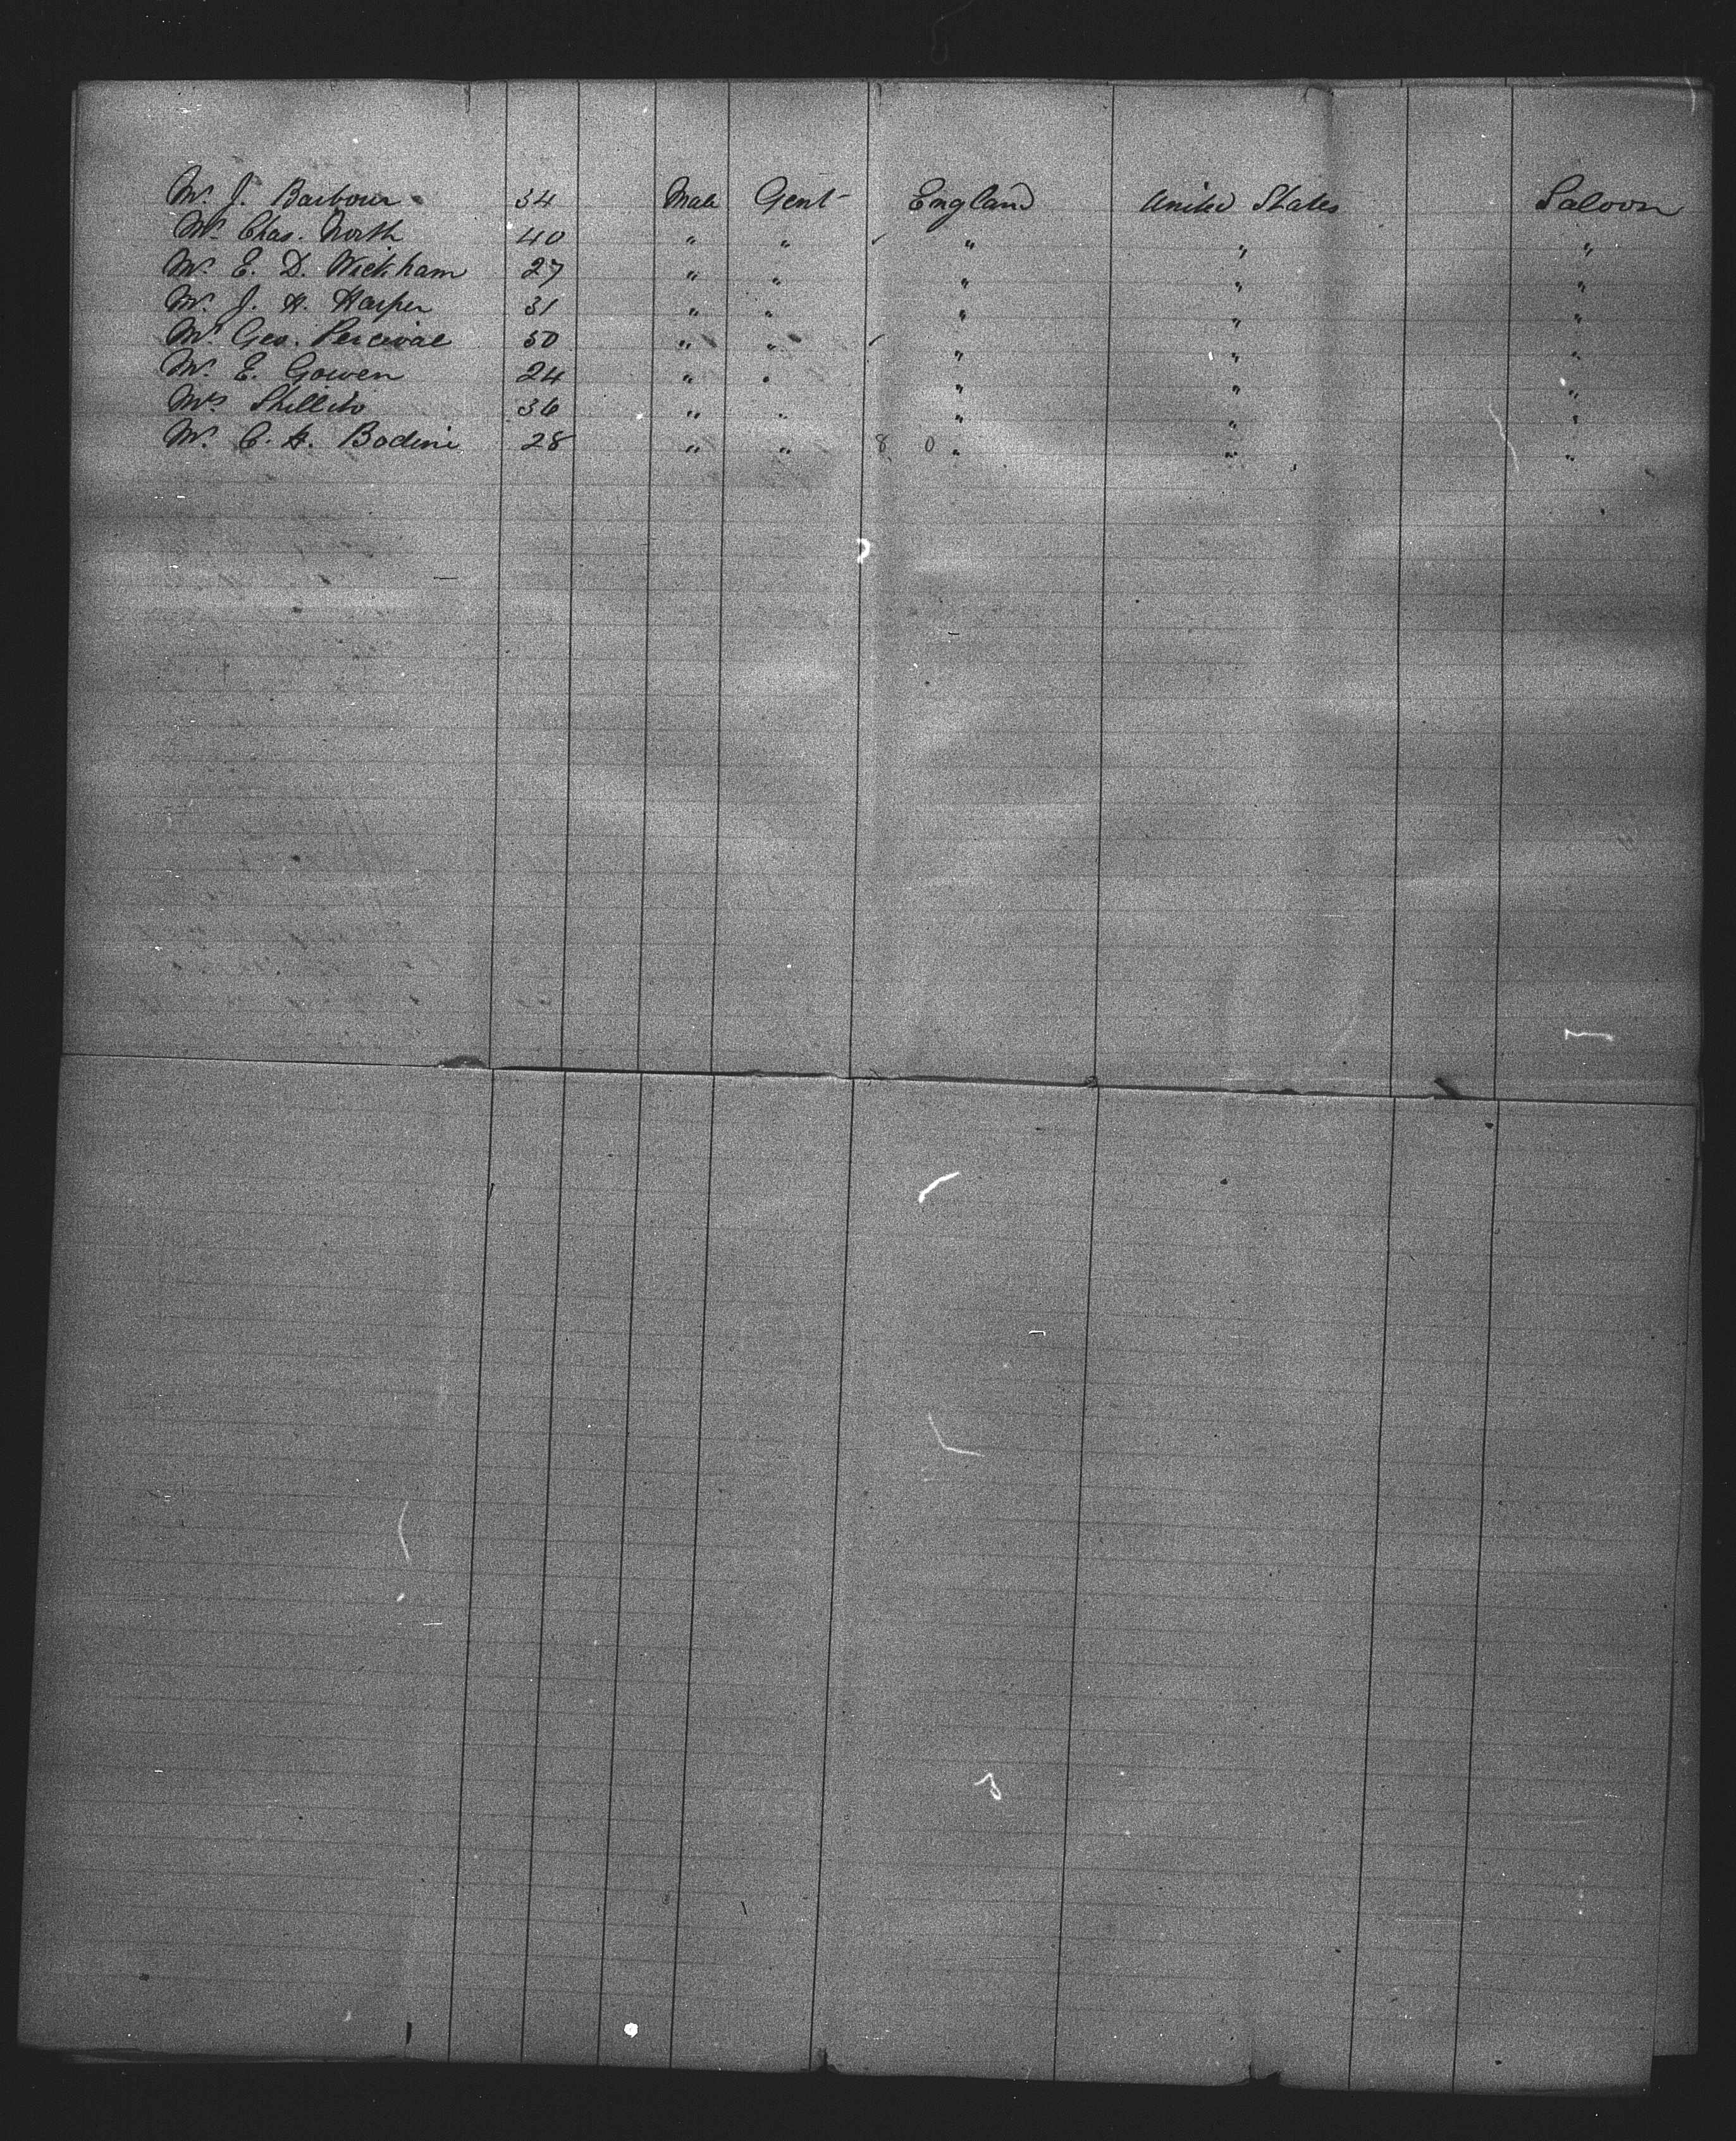 Mr. J. Barbour 34 Male Gent England United States Saloon
Mr. Chas. North 40 " " " " "
Mr. E. D. Wickham 27 " " " " "
Mr. J. H. Harper 31 " " " " "
Mr. Geo. Percival 50 " " " " "
Mr. E. Gowen 24 " " " " "
Mrs Shillito 36 " " " " "
Mr. C. H. Bodine 28 " " 8 0 " " "